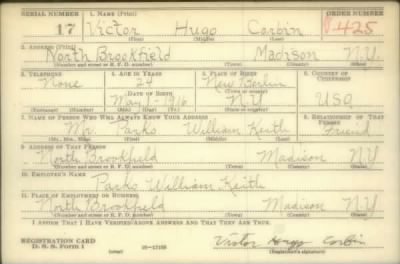 SERIAL NUMBER 1. NAME (Print) ORDER NUMBER
17 Victor Hugo Corbin V425
(First) (Middle) (Last)
2. ADDRESS (Print)
North Brookfield Madison N.Y.
(Number and street or R. F. D. number) (Town) (County) (State)
3. TELEPHONE 4. AGE IN YEARS 5. PLACE OF BIRTH 6. COUNTRY OF CITIZENSHIP
None 24 New Berlin
DATE OF BIRTH (Town or county)
May 1916 N.Y. USA
(Exchange) (Number) (Mo.) (Day) (Yr.) (State or country)
7. NAME OF PERSON WHO WILL ALWAYS KNOW YOUR ADDRESS 8. RELATIONSHIP OF THAT PERSON
Mr. Parks William Keith Friend
(Mr., Mrs., Miss) (First) (Middle) (Last)
9. ADDRESS OF THAT PERSON
North Brookfield Madison N.Y.
(Number and street or R. F. D. number) (Town) (County) (State)
10. EMPLOYER'S NAME
Parks William Keith
11. PLACE OF EMPLOYMENT OR BUSINESS
North Brookfield Madison N.Y.
(Number and street or R. F. D. number) (Town) (County) (State)
I AFFIRM THAT I HAVE VERIFIED ABOVE ANSWERS AND THAT THEY ARE TRUE.
REGISTRATION CARD Victor Hugo Corbin
D. S. S. Form 1 (over) 16—17105 (Registrant's signature)